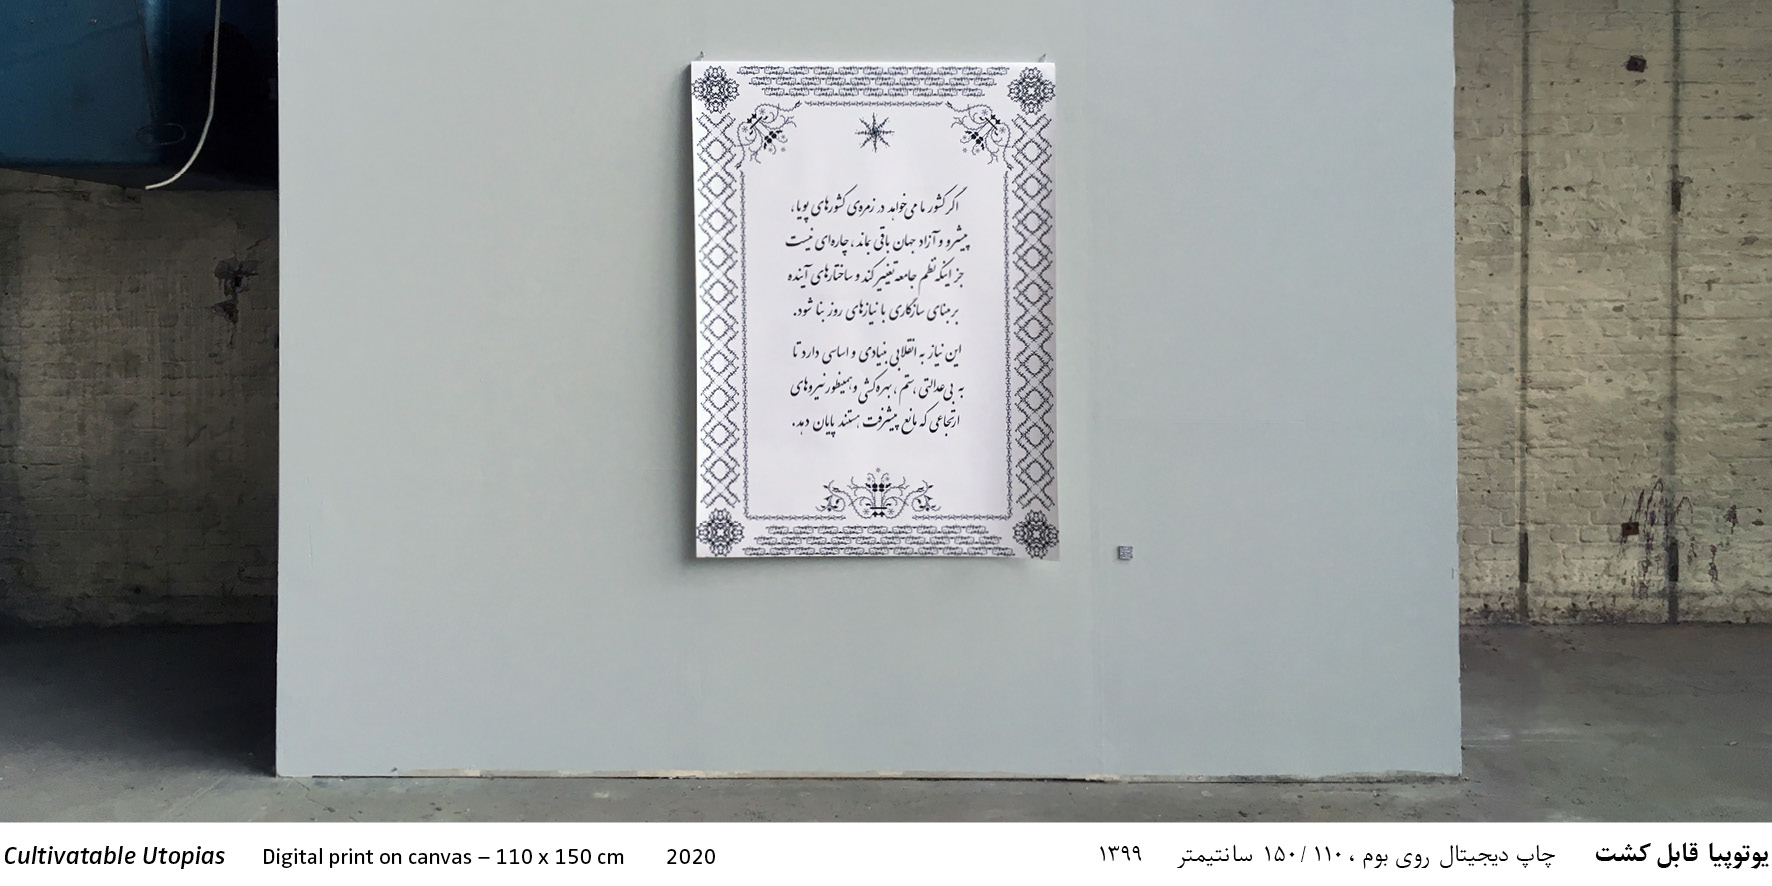 اگر کشور ما می‌خواهد در زمره‌ی کشورهای پویا،
پیشرو و آزاد جهان باقی بماند، چاره‌ای نیست
جز اینکه نظم جامعه تغییر کند و ساختارهای آینده
بر مبنای سازگاری با نیازهای روز بنا شود.
این نیاز به انقلابی بنیادی و اساسی دارد تا
به بی‌عدالتی، ستم، بهره‌کشی و همینطور نیروهای
ارتجاعی که مانع پیشرفت هستند پایان دهد.
Cultivatable Utopias Digital print on canvas – 110 x 150 cm 2020
یوتوپیا قابل کشت چاپ دیجیتال روی بوم ، ۱۱۰ / ۱۵۰ سانتیمتر ۱۳۹۹